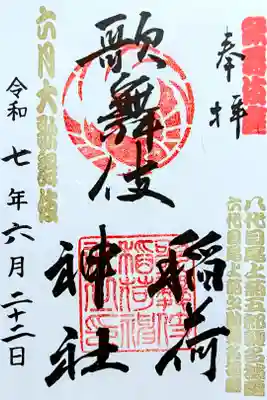 奉拝
八代目尾上菊五郎襲名披露
六代目尾上菊之助襲名披露
歌舞伎
稲荷
神社
六月大歌舞伎
令和七年六月二十二日